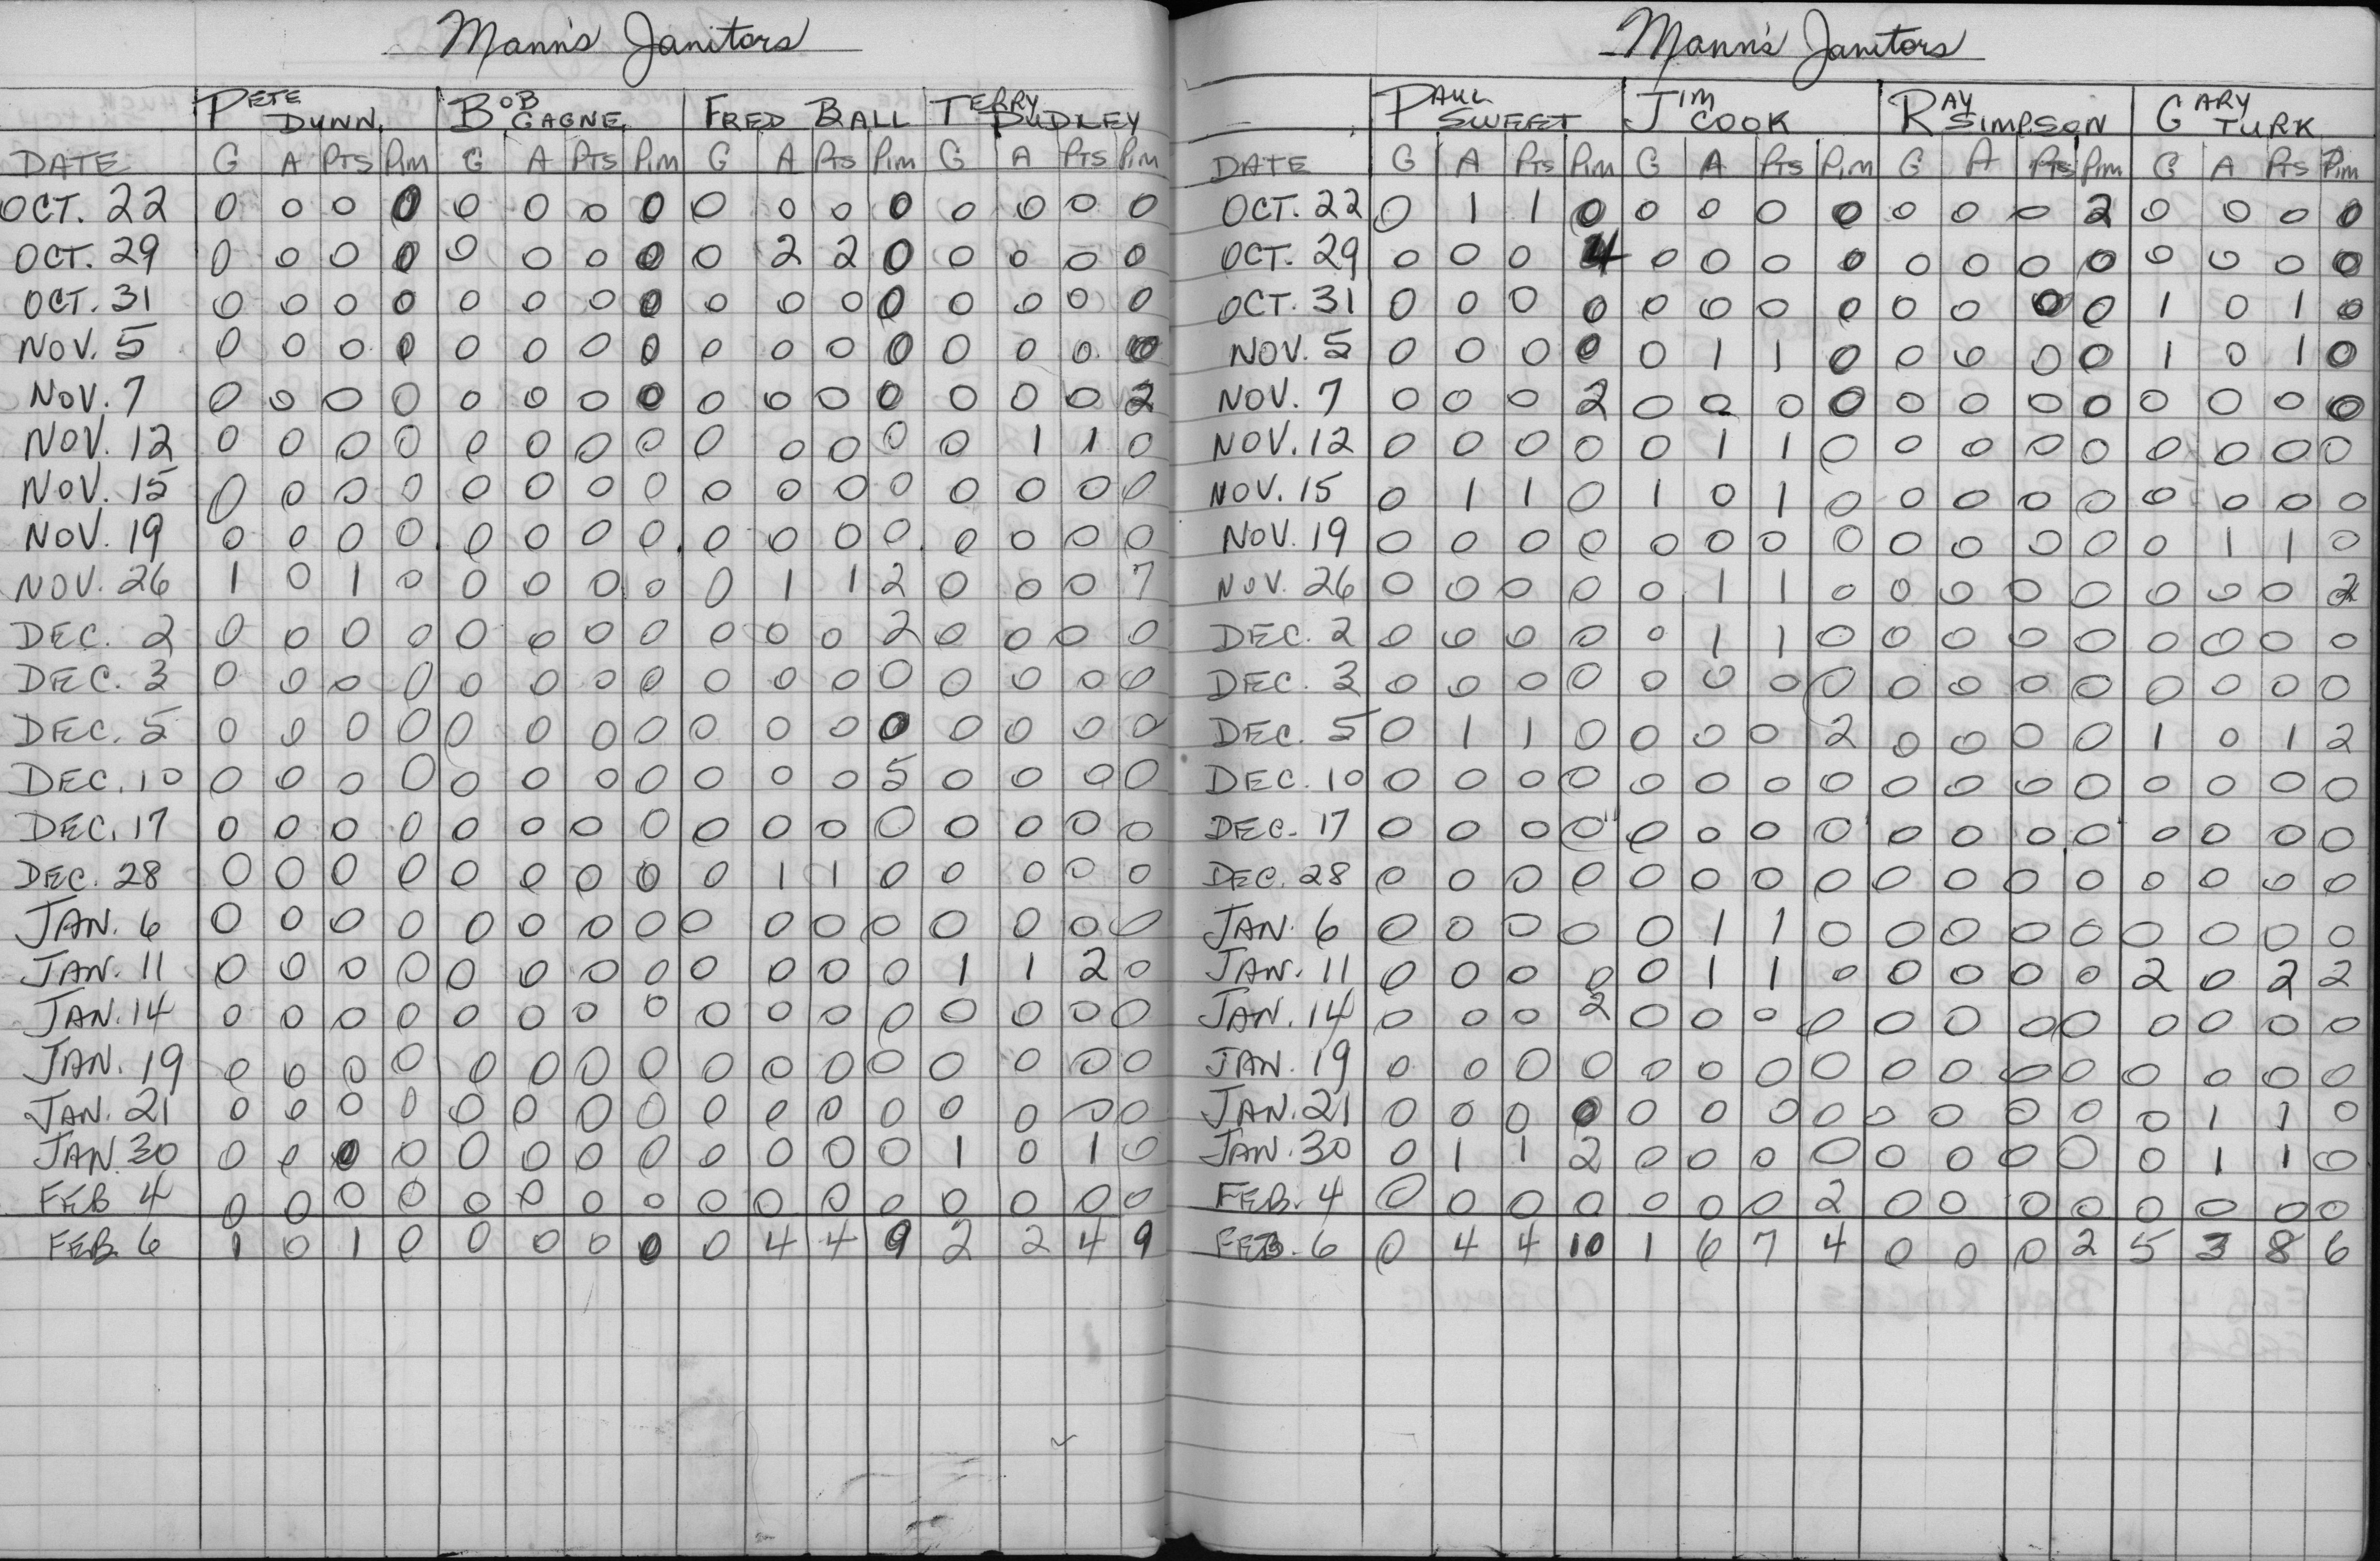 Mann's Janitors
PETE DUNN. BOB GAGNE FRED BALL TERRY DUDLEY
DATE G A PTS Pim G A PTS Pim G A PTS Pim G A PTS Pim
OCT. 22 0 0 0 0 0 0 0 0 0 0 0 0 0 0 0 0
OCT. 29 0 0 0 0 0 0 0 0 0 2 2 0 0 0 0 0
OCT. 31 0 0 0 0 0 0 0 0 0 0 0 0 0 0 0 0
NOV. 5 0 0 0 0 0 0 0 0 0 0 0 0 0 0 0 0
NOV. 7 0 0 0 0 0 0 0 0 0 0 0 0 0 0 0 2
NOV. 12 0 0 0 0 0 0 0 0 0 0 0 0 0 1 1 0
NOV. 15 0 0 0 0 0 0 0 0 0 0 0 0 0 0 0 0
NOV. 19 0 0 0 0 0 0 0 0 0 0 0 0 0 0 0 0
NOV. 26 1 0 1 0 0 0 0 0 0 1 1 2 0 0 0 7
DEC. 2 0 0 0 0 0 0 0 0 0 0 0 2 0 0 0 0
DEC. 3 0 0 0 0 0 0 0 0 0 0 0 0 0 0 0 0
DEC. 5 0 0 0 0 0 0 0 0 0 0 0 0 0 0 0 0
DEC. 10 0 0 0 0 0 0 0 0 0 0 0 5 0 0 0 0
DEC. 17 0 0 0 0 0 0 0 0 0 0 0 0 0 0 0 0
DEC. 28 0 0 0 0 0 0 0 0 0 1 1 0 0 0 0 0
JAN. 6 0 0 0 0 0 0 0 0 0 0 0 0 0 0 0 0
JAN. 11 0 0 0 0 0 0 0 0 0 0 0 0 1 1 2 0
JAN. 14 0 0 0 0 0 0 0 0 0 0 0 0 0 0 0 0
JAN. 19 0 0 0 0 0 0 0 0 0 0 0 0 0 0 0 0
JAN. 21 0 0 0 0 0 0 0 0 0 0 0 0 0 0 0 0
JAN. 30 0 0 0 0 0 0 0 0 0 0 0 0 1 0 1 0
FEB 4 0 0 0 0 0 0 0 0 0 0 0 0 0 0 0 0
FEB. 6 1 0 1 0 0 0 0 0 0 4 4 9 2 2 4 9
Mann's Janitors
PAUL SWEET JIM COOK RAY SIMPSON GARY TURK
DATE G A PTS Pim G A PTS Pim G A PTS Pim G A PTS Pim
OCT. 22 0 1 1 0 0 0 0 0 0 0 0 2 0 0 0 0
OCT. 29 0 0 0 4 0 0 0 0 0 0 0 0 0 0 0 0
OCT. 31 0 0 0 0 0 0 0 0 0 0 0 0 1 0 1 0
NOV. 5 0 0 0 0 0 1 1 0 0 0 0 0 1 0 1 0
NOV. 7 0 0 0 2 0 0 0 0 0 0 0 0 0 0 0 0
NOV. 12 0 0 0 0 0 1 1 0 0 0 0 0 0 0 0 0
NOV. 15 0 1 1 0 1 0 1 0 0 0 0 0 0 0 0 0
NOV. 19 0 0 0 0 0 0 0 0 0 0 0 0 0 1 1 0
NOV. 26 0 0 0 0 0 1 1 0 0 0 0 0 0 0 0 2
DEC. 2 0 0 0 0 0 1 1 0 0 0 0 0 0 0 0 0
DEC. 3 0 0 0 0 0 0 0 0 0 0 0 0 0 0 0 0
DEC. 5 0 1 1 0 0 0 0 2 0 0 0 0 1 0 1 2
DEC. 10 0 0 0 0 0 0 0 0 0 0 0 0 0 0 0 0
DEC. 17 0 0 0 0 0 0 0 0 0 0 0 0 0 0 0 0
DEC. 28 0 0 0 0 0 0 0 0 0 0 0 0 0 0 0 0
JAN. 6 0 0 0 0 0 1 1 0 0 0 0 0 0 0 0 0
JAN. 11 0 0 0 0 0 1 1 0 0 0 0 0 2 0 2 2
JAN. 14 0 0 0 2 0 0 0 0 0 0 0 0 0 0 0 0
JAN. 19 0 0 0 0 0 0 0 0 0 0 0 0 0 0 0 0
JAN. 21 0 0 0 0 0 0 0 0 0 0 0 0 0 1 1 0
JAN. 30 0 1 1 2 0 0 0 0 0 0 0 0 0 1 1 0
FEB. 4 0 0 0 0 0 0 0 2 0 0 0 0 0 0 0 0
FEB. 6 0 4 4 10 1 6 7 4 0 0 0 2 5 3 8 6